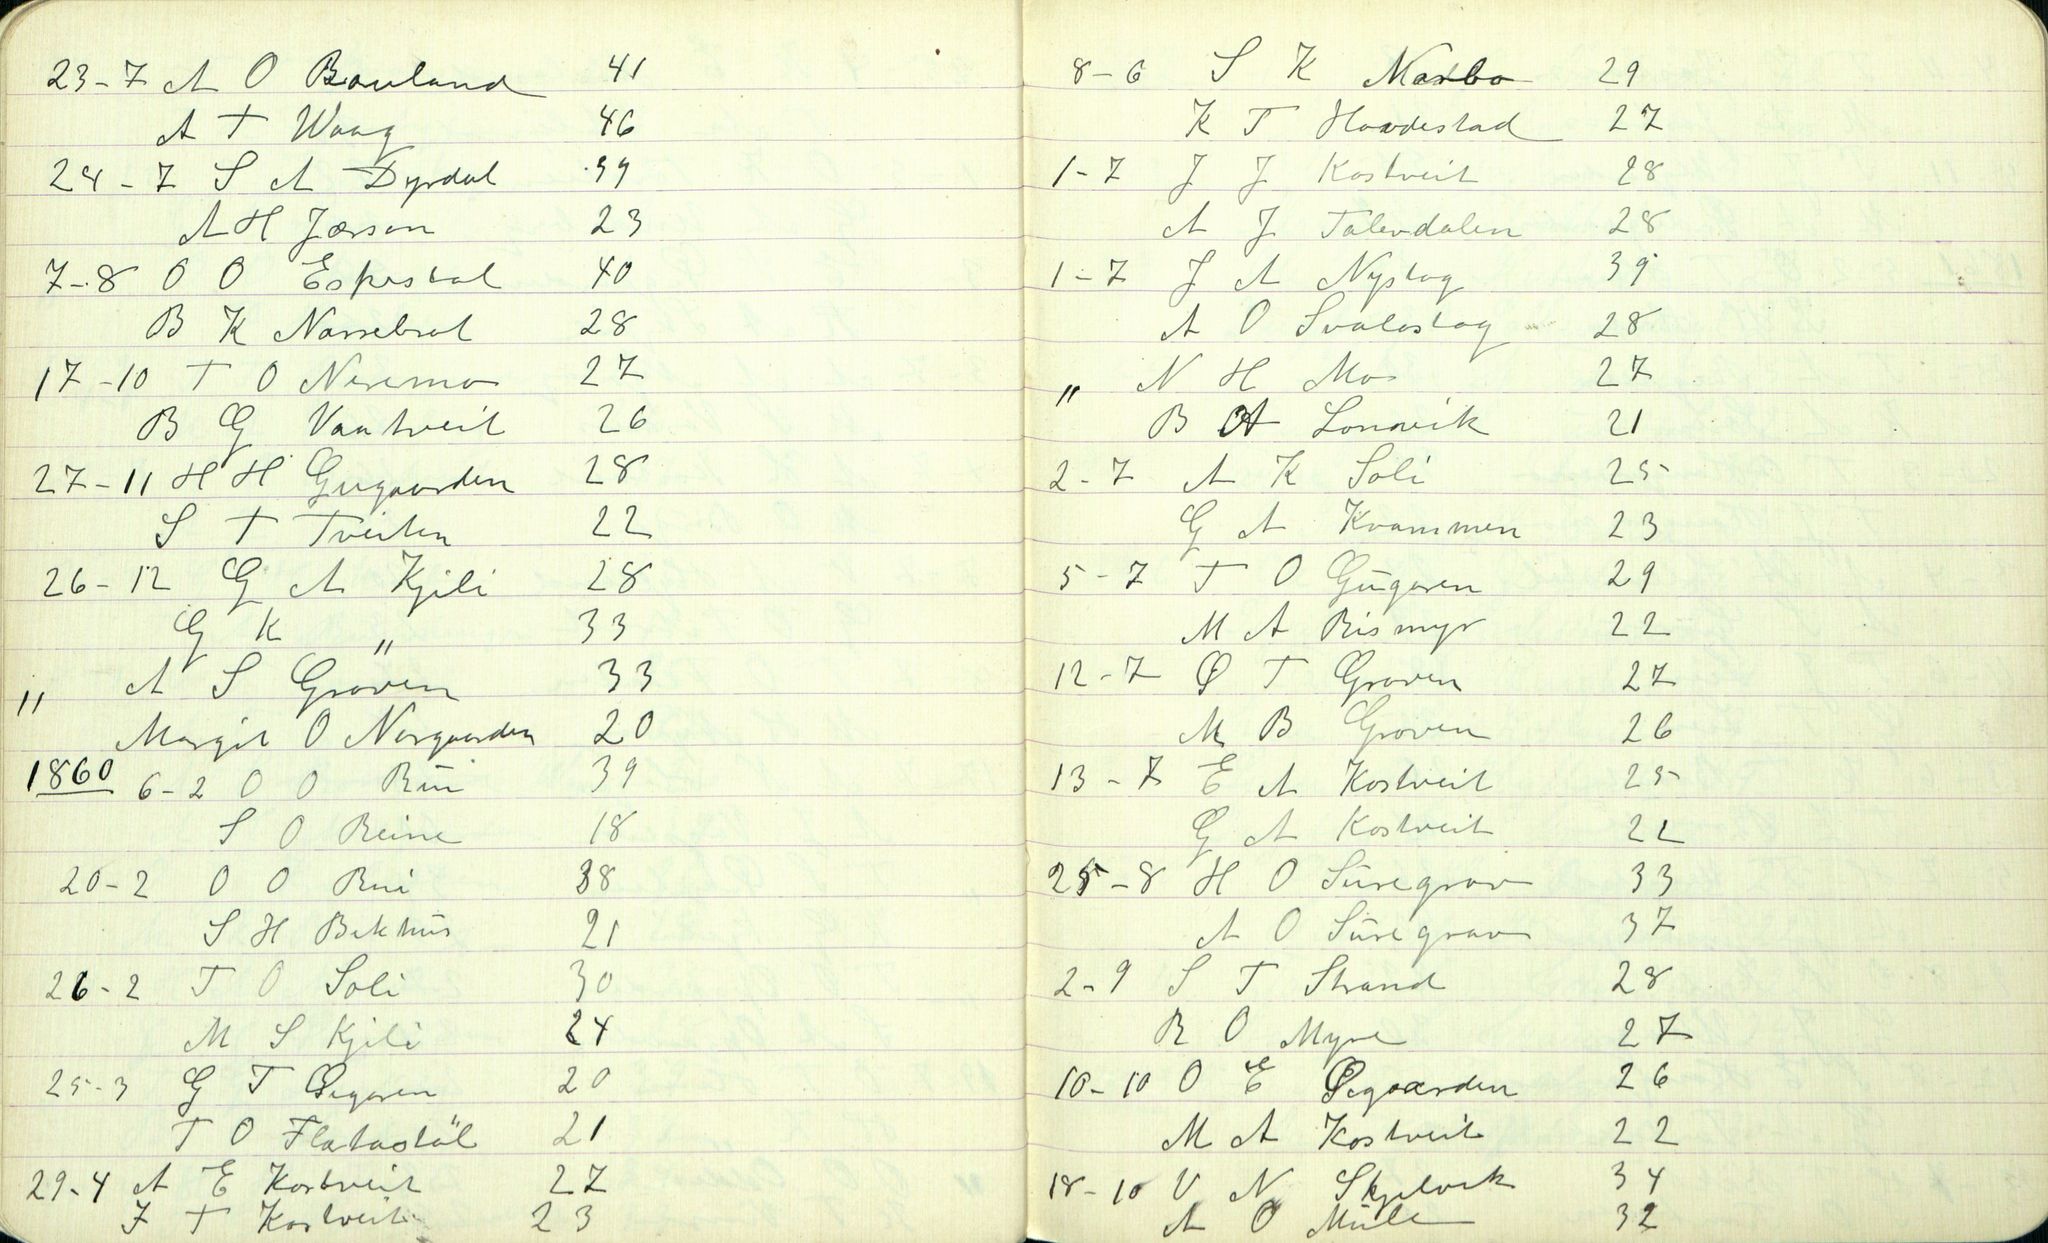 23-7 A O Bouland 41
A T Waag 46
24-7 S A Dyrdal 39
A H Jørson 23
7-8 O O Espestøl 40
B K Narrebrot 28
17-10 T O Neremo 27
B G Vaatveit 26
27-11 H H Gugaarden 28
S T Tveiten 22
26-12 G A Kjili 28
G K " 33
" A S Groven 33
Margit O Norgaarden 20
1860 6-2 O O Rui 39
S O Reine 18
20-2 O O Rui 38
S H Bekhus 21
26-2 T O Soli 30
M S Kjili 24
25-3 G T Øegaren 20
T O Flatastöl 21
29-4 A E Kostveit 27
J T Kostveit 23
8-6 S K Narbo 29
K T Hovdestad 27
1-7 J J Kostveit 28
A J Talevdalen 28
1-7 J A Nystog 39
A O Svalastog 28
" N H Mo 27
B A Lonavik 21
2-7 A K Soli 25
G A Kvammen 23
5-7 T O Gugaren 29
M A Rismyr 22
12-7 Ø T Groven 27
M B Groven 26
13-7 E A Kostveit 25
G A Kostveit 22
25-8 H O Suregrav 33
A O Suregrav 37
2-9 S T Strand 28
R O Myre 27
10-10 O E Øegaarden 26
M A Kostveit 22
18-10 V N Skjelvik 34
A O Mule 32